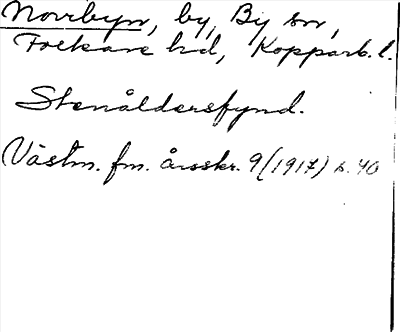 Norrbyn, by, By sn,
Folkare hd, Kopparb. l.
Stenåldersfynd.
Västm. fm. årsskr. 9 (1917) s. 40